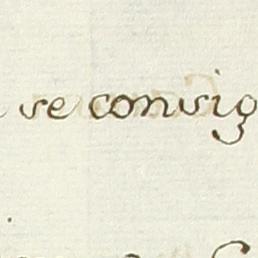 se convig